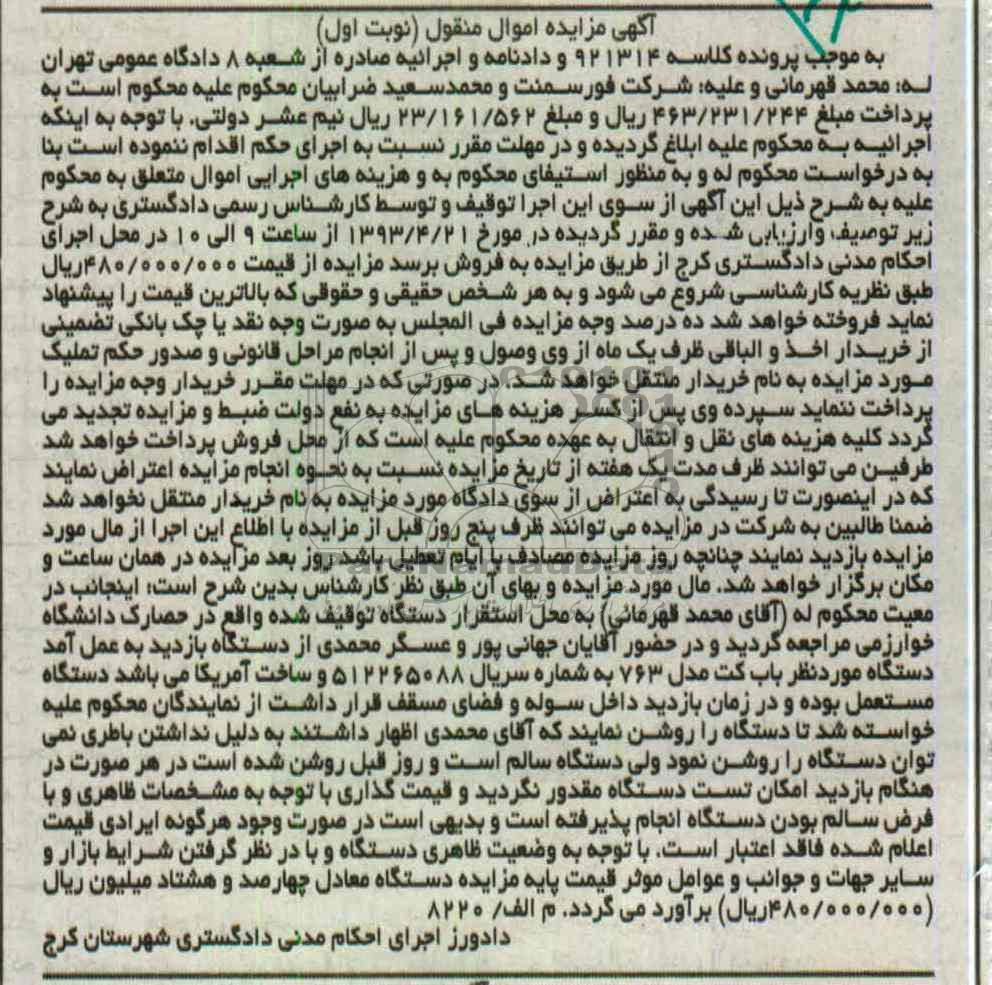 آگهی مزایده اموال منقول (نوبت اول)
به موجب پرونده کلاسه ۹۲۱۳۱۴ و دادنامه و اجرائیه صادره از شعبه ۸ دادگاه عمومی تهران
له: محمد قهرمانی و علیه: شرکت فورسمنت و محمدسعید ضرابیان محکوم علیه محکوم است به
پرداخت مبلغ ۴۶۳/۲۳۱/۲۴۴ ریال و مبلغ ۲۳/۱۶۱/۵۶۲ ریال نیم عشر دولتی. با توجه به اینکه
اجرائیه به محکوم علیه ابلاغ گردیده و در مهلت مقرر نسبت به اجرای حکم اقدام ننموده است بنا
به درخواست محکوم له و به منظور استیفای محکوم به و هزینه های اجرایی اموال متعلق به محکوم
علیه به شرح ذیل این آگهی از سوی این اجرا توقیف و توسط کارشناس رسمی دادگستری به شرح
زیر توصیف وارزیابی شده و مقرر گردیده در مورخ ۱۳۹۳/۴/۲۱ از ساعت ۹ الی ۱۰ در محل اجرای
احکام مدنی دادگستری کرج از طریق مزایده به فروش برسد مزایده از قیمت ۴۸۰/۰۰۰/۰۰۰ریال
طبق نظریه کارشناسی شروع می شود و به هر شخص حقیقی و حقوقی که بالاترین قیمت را پیشنهاد
نماید فروخته خواهد شد ده درصد وجه مزایده فی المجلس به صورت وجه نقد یا چک بانکی تضمینی
از خریدار اخذ و الباقی ظرف یک ماه از وی وصول و پس از انجام مراحل قانونی و صدور حکم تملیک
مورد مزایده به نام خریدار منتقل خواهد شد. در صورتی که در مهلت مقرر خریدار وجه مزایده را
پرداخت ننماید سپرده وی پس از کسر هزینه های مزایده به نفع دولت ضبط و مزایده تجدید می
گردد کلیه هزینه های نقل و انتقال به عهده محکوم علیه است که از محل فروش پرداخت خواهد شد
طرفین می توانند ظرف مدت یک هفته از تاریخ مزایده نسبت به نحوه انجام مزایده اعتراض نمایند
که در اینصورت تا رسیدگی به اعتراض از سوی دادگاه مورد مزایده به نام خریدار منتقل نخواهد شد
ضمنا طالبین به شرکت در مزایده می توانند ظرف پنج روز قبل از مزایده با اطلاع این اجرا از مال مورد
مزایده بازدید نمایند چنانچه روز مزایده مصادف با ایام تعطیل باشد روز بعد مزایده در همان ساعت و
مکان برگزار خواهد شد. مال مورد مزایده و بهای آن طبق نظر کارشناس بدین شرح است: اینجانب در
معیت محکوم له (آقای محمد قهرمانی) به محل استقرار دستگاه توقیف شده واقع در حصارک دانشگاه
خوارزمی مراجعه گردید و در حضور آقایان جهانی پور و عسگر محمدی از دستگاه بازدید به عمل آمد
دستگاه موردنظر باب کت مدل ۷۶۳ به شماره سریال ۵۱۲۲۶۵۰۸۸ و ساخت آمریکا می باشد دستگاه
مستعمل بوده و در زمان بازدید داخل سوله و فضای مسقف قرار داشت از نمایندگان محکوم علیه
خواسته شد تا دستگاه را روشن نمایند که آقای محمدی اظهار داشتند به دلیل نداشتن باطری نمی
توان دستگاه را روشن نمود ولی دستگاه سالم است و روز قبل روشن شده است در هر صورت در
هنگام بازدید امکان تست دستگاه مقدور نگردید و قیمت گذاری با توجه به مشخصات ظاهری و با
فرض سالم بودن دستگاه انجام پذیرفته است و بدیهی است در صورت وجود هرگونه ایرادی قیمت
اعلام شده فاقد اعتبار است. با توجه به وضعیت ظاهری دستگاه و با در نظر گرفتن شرایط بازار و
سایر جهات و جوانب و عوامل موثر قیمت پایه مزایده دستگاه معادل چهارصد و هشتاد میلیون ریال
(۴۸۰/۰۰۰/۰۰۰ریال) برآورد می گردد. م الف/ ۸۲۲۰
دادورز اجرای احکام مدنی دادگستری شهرستان کرج